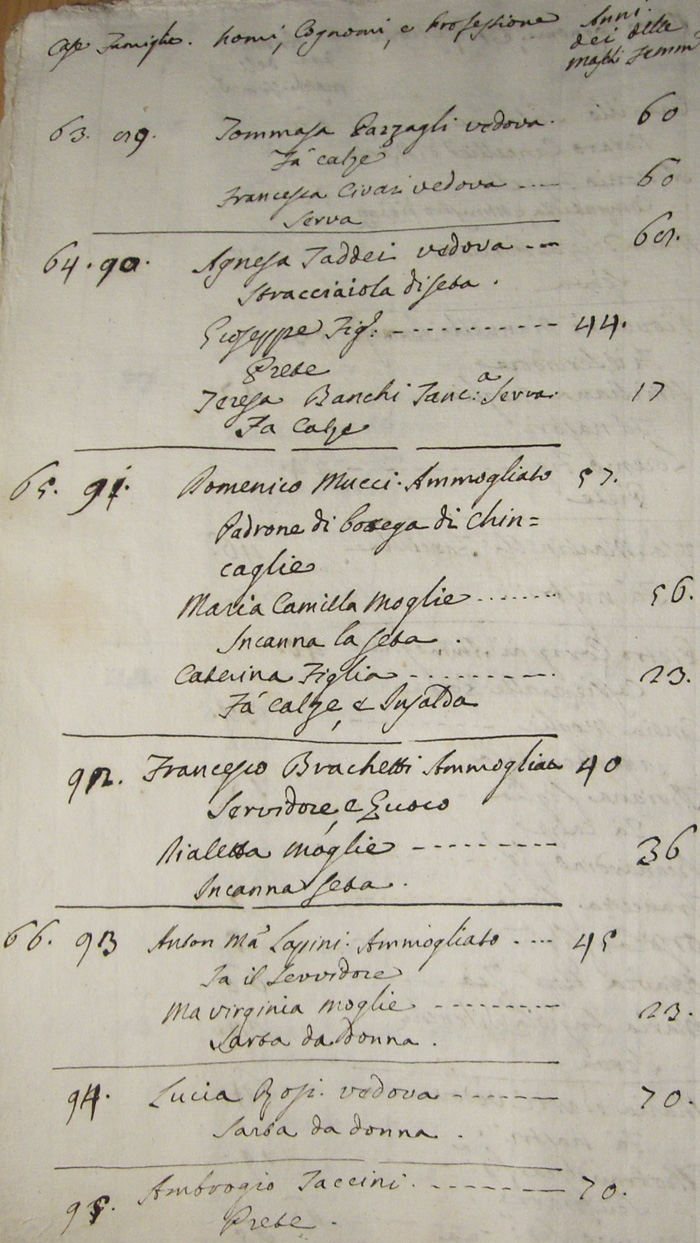 Case Famiglie. Nomi, Cognomi, e Professione Anni
dei delle
masti femm
63. 89. Tommasa Barzagli vedova. 60
Fa calze
Francesca Civasi vedova ---- 60
Serva
64. 90. Agnesa Taddei vedova --- 69.
Stracciaiola di seta.
Giuseppe Figl: ---------- 44.
Prete
Teresa Banchi Fanc:a Serva. 17
Fa Calze
65. 91. Domenico Mucci. Ammogliato 57.
Padrone di botega di chin=
caglie
Maria Camilla Moglie ........ 56.
Incanna la seta.
Caterina Figlia ---------- 23.
Fa calze, e Insalda
92. Francesco Brachetti Ammogliato 40
Servidore, e Quoco
Violetta moglie ---------- 36
Incanna seta.
66. 93 Anton Ma Lapini. Ammogliato .... 45
Fa il Servidore
Ma virginia moglie --------- 23.
Sarta da Donna.
94. Lucia Rosi. vedova -------- 70.
Sarta da donna.
95. Ambrogio Taccini. --------- 70.
Prete.